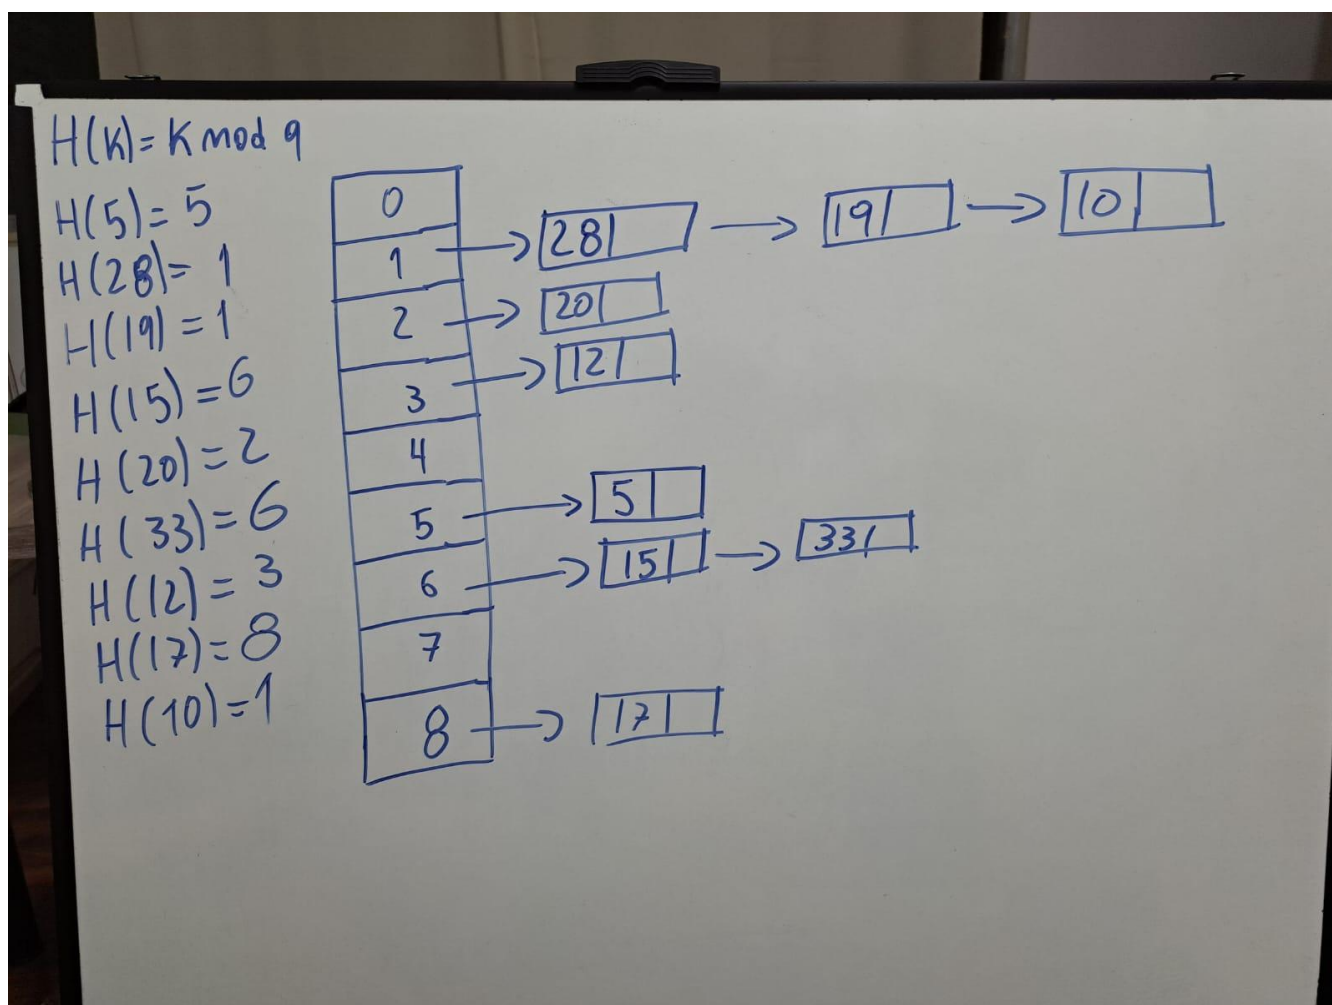 H(K)=K mod 9
H(5)=5
H(28)=1
H(19)=1
H(15)=6
H(20)=2
H(33)=6
H(12)=3
H(17)=8
H(10)=1
0
1 → 28 → 19 → 10
2 → 20
3 → 12
4
5 → 5
6 → 15 → 33
7
8 → 17